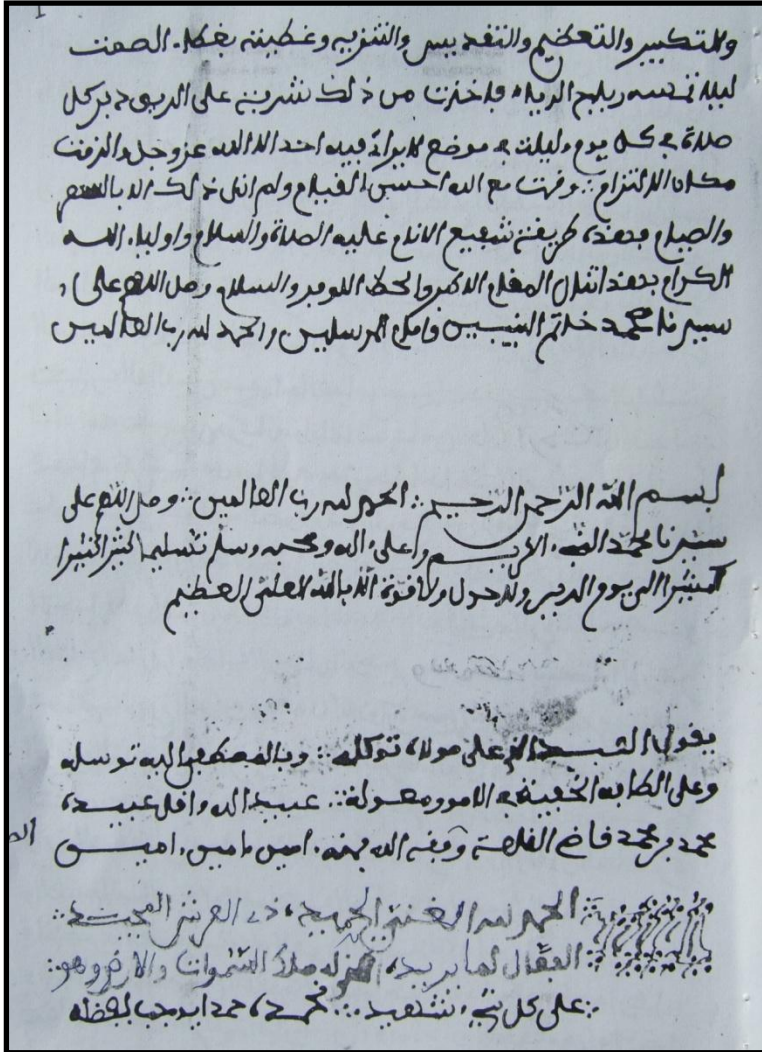 والتكبير والتعظيم والتقديس والتنزيه وغطيته بغطاء الصمت
ليلا تمسه رياح الرياء فاخذت من ذلك شربة على الريق دبر كل
صلاة في كل يوم وليلة في موضع لا يراني فيه احد الا الله عز وجل والزمت
مكان الالتزام وقمت مع الله احسن القيام ولم انل ذلك الا بالسهر
والصيام فهذه طريقة شفيع الانام عليه الصلاة والسلام واولياء الله
الكرام بهذا تنال المقام الاكبر والحظ الاوفر والسلام وصل اللهم على
سيدنا محمد خاتم النبيين وامام المرسلين والحمد لله رب العالمين
بسم الله الرحمن الرحيم الحمد لله رب العالمين وصل اللهم على
سيدنا محمد النبيء الكريم وعلى ءاله وصحبه وسلم تسليما كثيرا كثيرا
كثيرا الى يوم الدين ولا حول ولا قوة الا بالله العلي العظيم
يقول العبد على مولاه توكله وبالمصطفى اليه توسله
وعلى الطافه الخفية في الامور معوله عبيد الله واقل عبيده
محمد بن محمد قاضي القلعة وفقه الله بمنه ءامين ءامين ءامين
الحمد لله الغني الحميد ذي العرش المجيد
الفعال لما يريد الذي له ملك السموات والارض وهو
على كل شيء شهيد نحمده حمدا يوجب لفضله